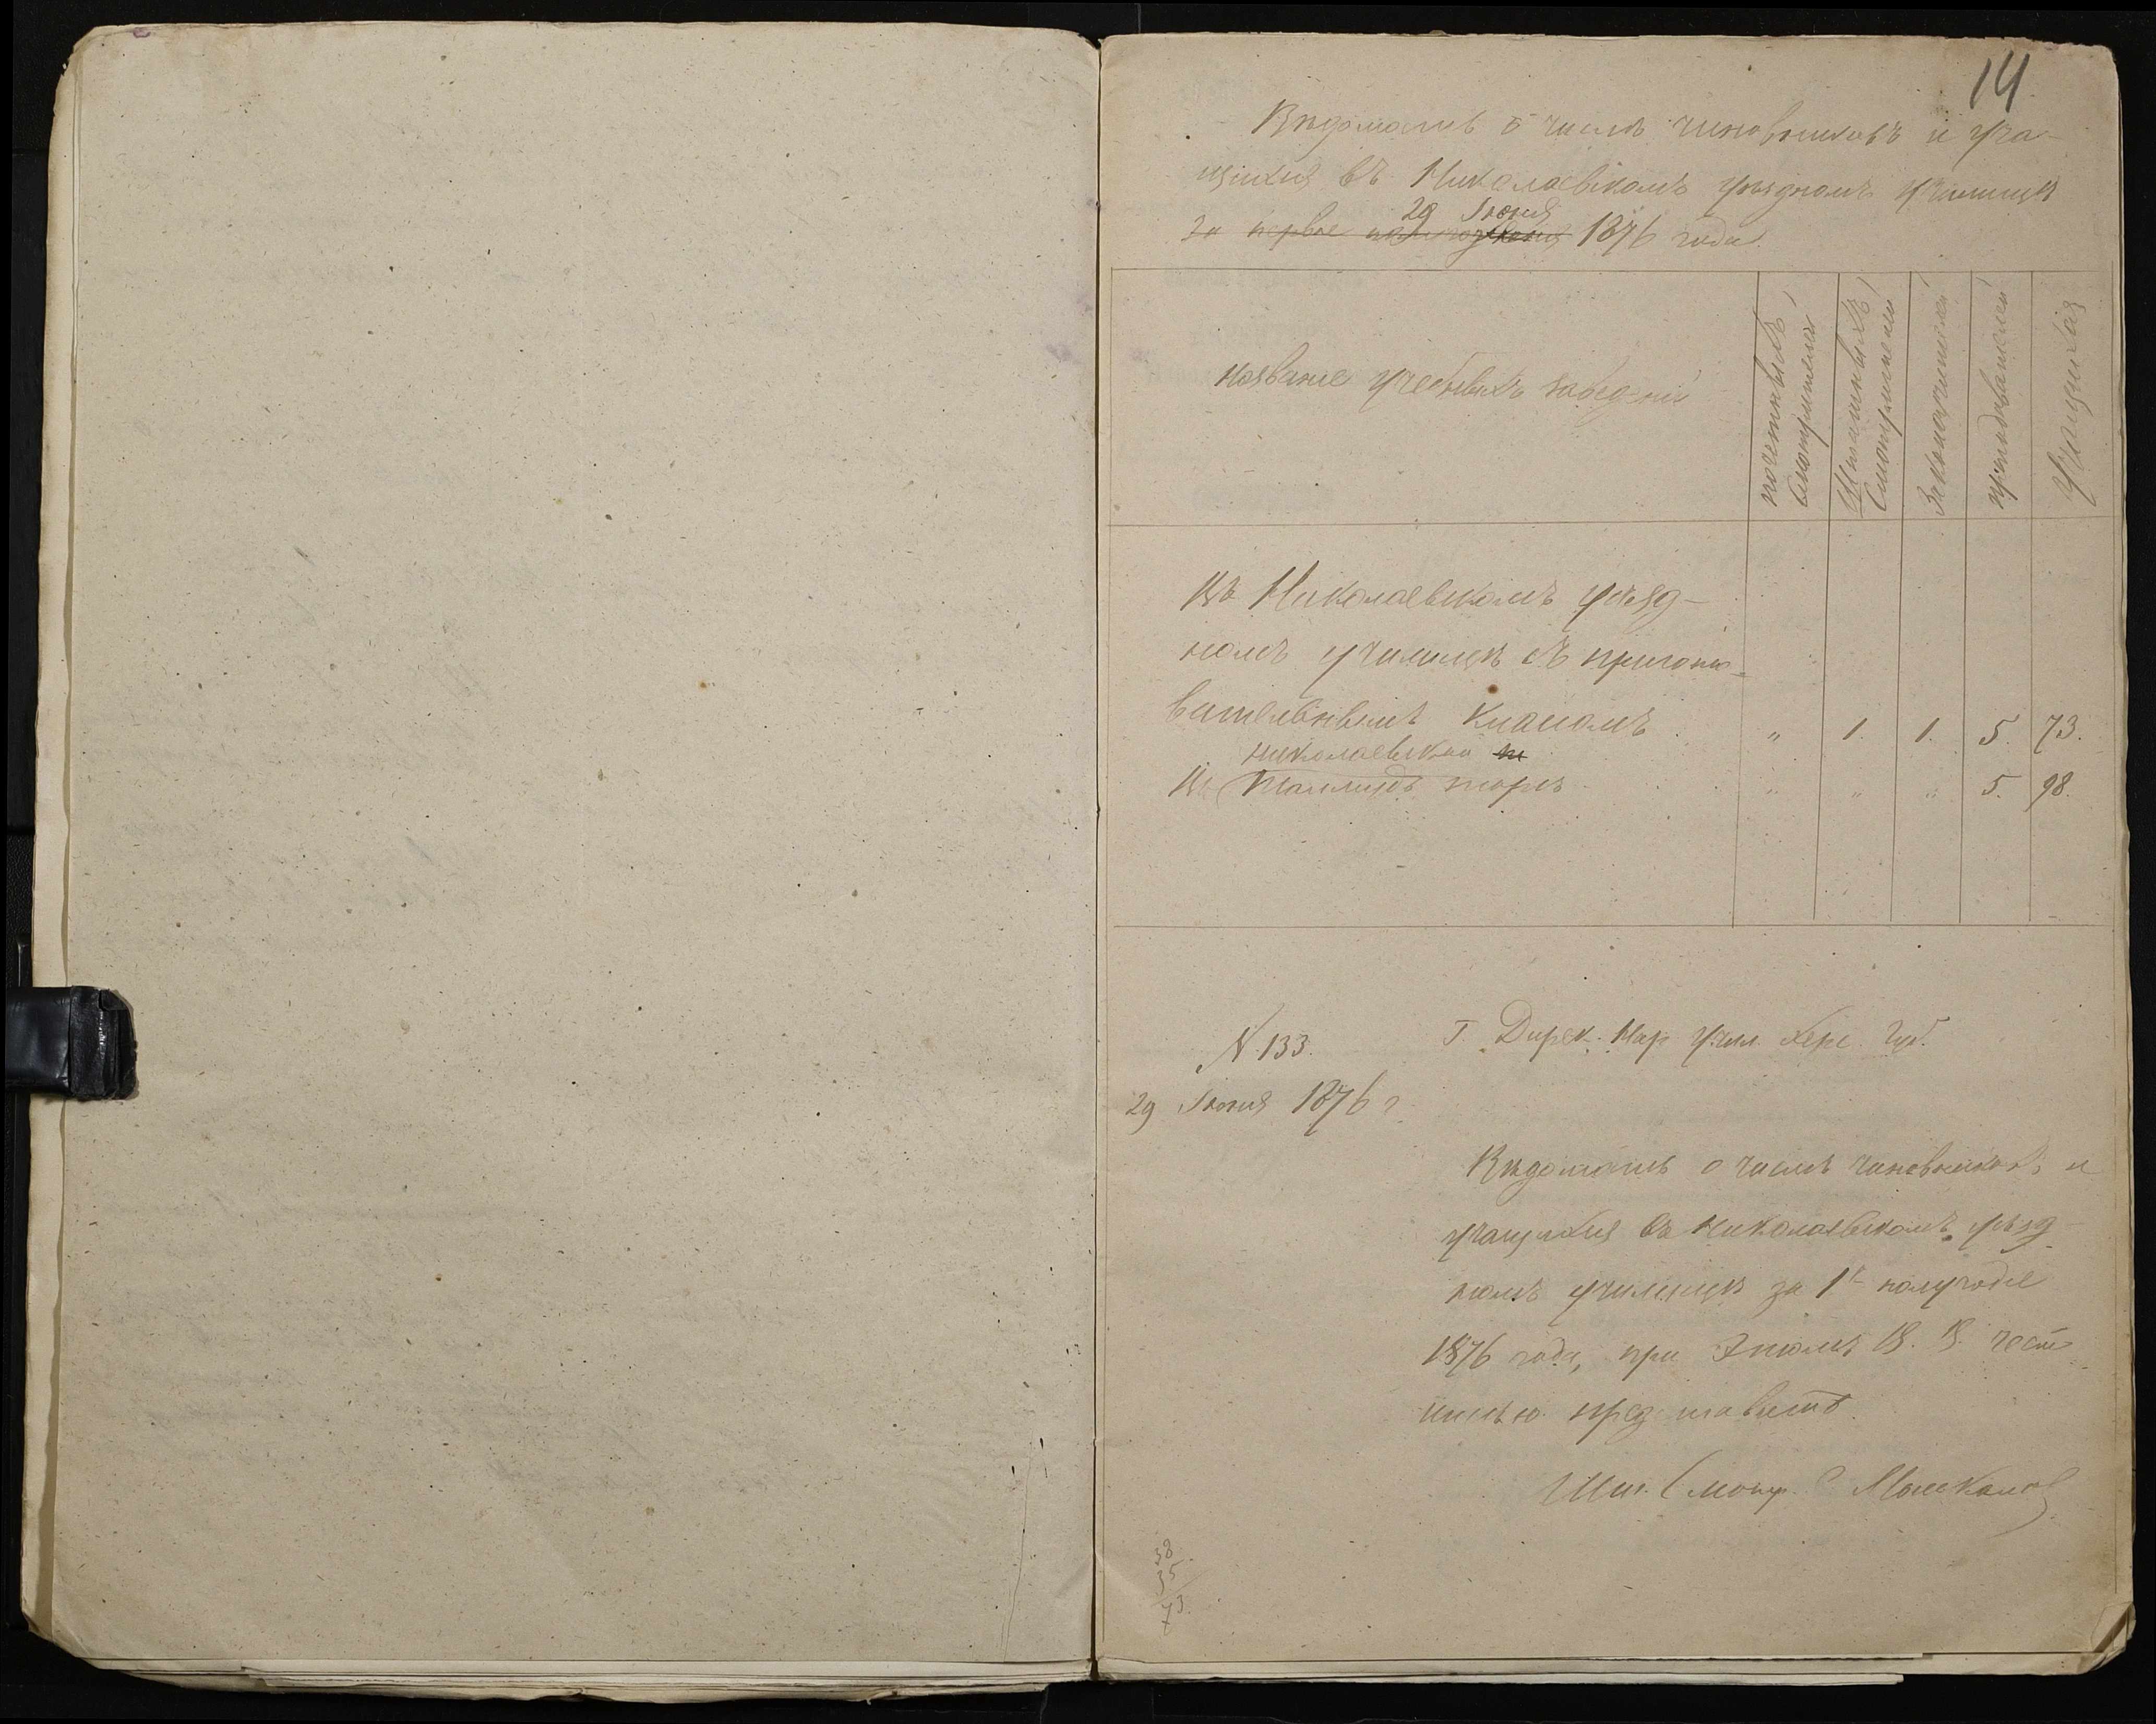 14
Вѣдомость о числѣ чиновниковъ и уча-
щихся въ Николаевскомъ уѣздномъ училищѣ
29 Іюня
за первое полугодіе 1876 года.
названіе учебныхъ заведеній
почетныхъ смотрителей
Штатныхъ Смотрителей
Законоучителей
преподавателей
Учащихся
Въ Николаевскомъ уѣзд-
номъ училищѣ съ пригото-
вительнымъ классомъ . " 1. 1. 5. 73.
николаевской
Въ " " " 5. 98.
N. 133. Г. Дирек. Нар. Учил. Херс. Губ.
29 Іюня 1876 г.
Вѣдомость о числѣ чиновниковъ и
учащихся въ Николаевскомъ уѣзд-
номъ училищѣ за 1е полугодіе
1876 года, при этомъ В. В. честь
имѣю представить.
Шт. Смотр.
38
35
73.